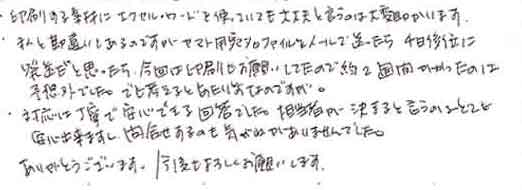 ・印刷する素材にエクセル・ワードを使っていても大丈夫と言うのは大変助かります。
・私も勘違いしあるのですが ヤマト 用ファイルをメールで送ったら 4日後位に
発送だと思ったら、今回は印刷もお願いしてたので約2週間かかったのは
予想外でした。でも考えるとあたり前なのですが。
・対応は丁寧で安心できる回答でした。担当者が決まると言うのことも
安心出来ますし、問合せするのも気がねがありませんでした。
ありがとうございます。今後もよろしくお願いします。